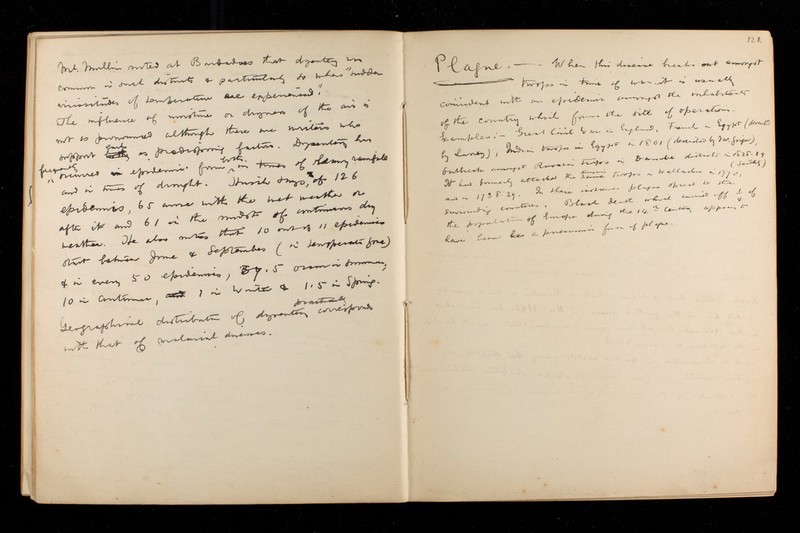 Mc. Mullin noted at Barbadoes that dysentery was
common in such districts & particularly so where "sudden
vicissitudes of temperature are experienced".
The influence of moisture or dryness of the air is
not so pronounced although there are writers who
support each as predisposing factors. Dysentery has
frequently occurred in epidemic form both in times of heavy rainfall
and in times of drought. Hirsch says, of 126
epidemics, 65 arose with the wet weather or
after it and 61 in the midst of continuous dry
weather. He also notes that 10 out of 11 epidemics
start between June & September (in temperate zone)
& in every 50 epidemics, 37.5 occur in Summer,
10 in Autumn, 1 in Winter & 1.5 in Spring.
Geographical distribution of dysentery practically corresponds
with that of malarial diseases.
121.
Plague. — When this disease breaks out amongst
troops in time of war it is usually
coincident with an epidemic amongst the inhabitants
of the country which forms the site of operations.
Examples:- Great Civil War in England, French in Egypt (described
by Larrey), Indian troops in Egypt in 1801 (described by McGrigor),
Outbreak amongst Russian troops in Danube districts in 1828-29
It had formerly attacked the troops in Wallachia in 1770,
and in 1738-39. In these instances plague spread to the
surrounding countries. Black death which carried off ¼ of
the population of Europe during the 14th Century appears to
have been a pneumonic form of plague.